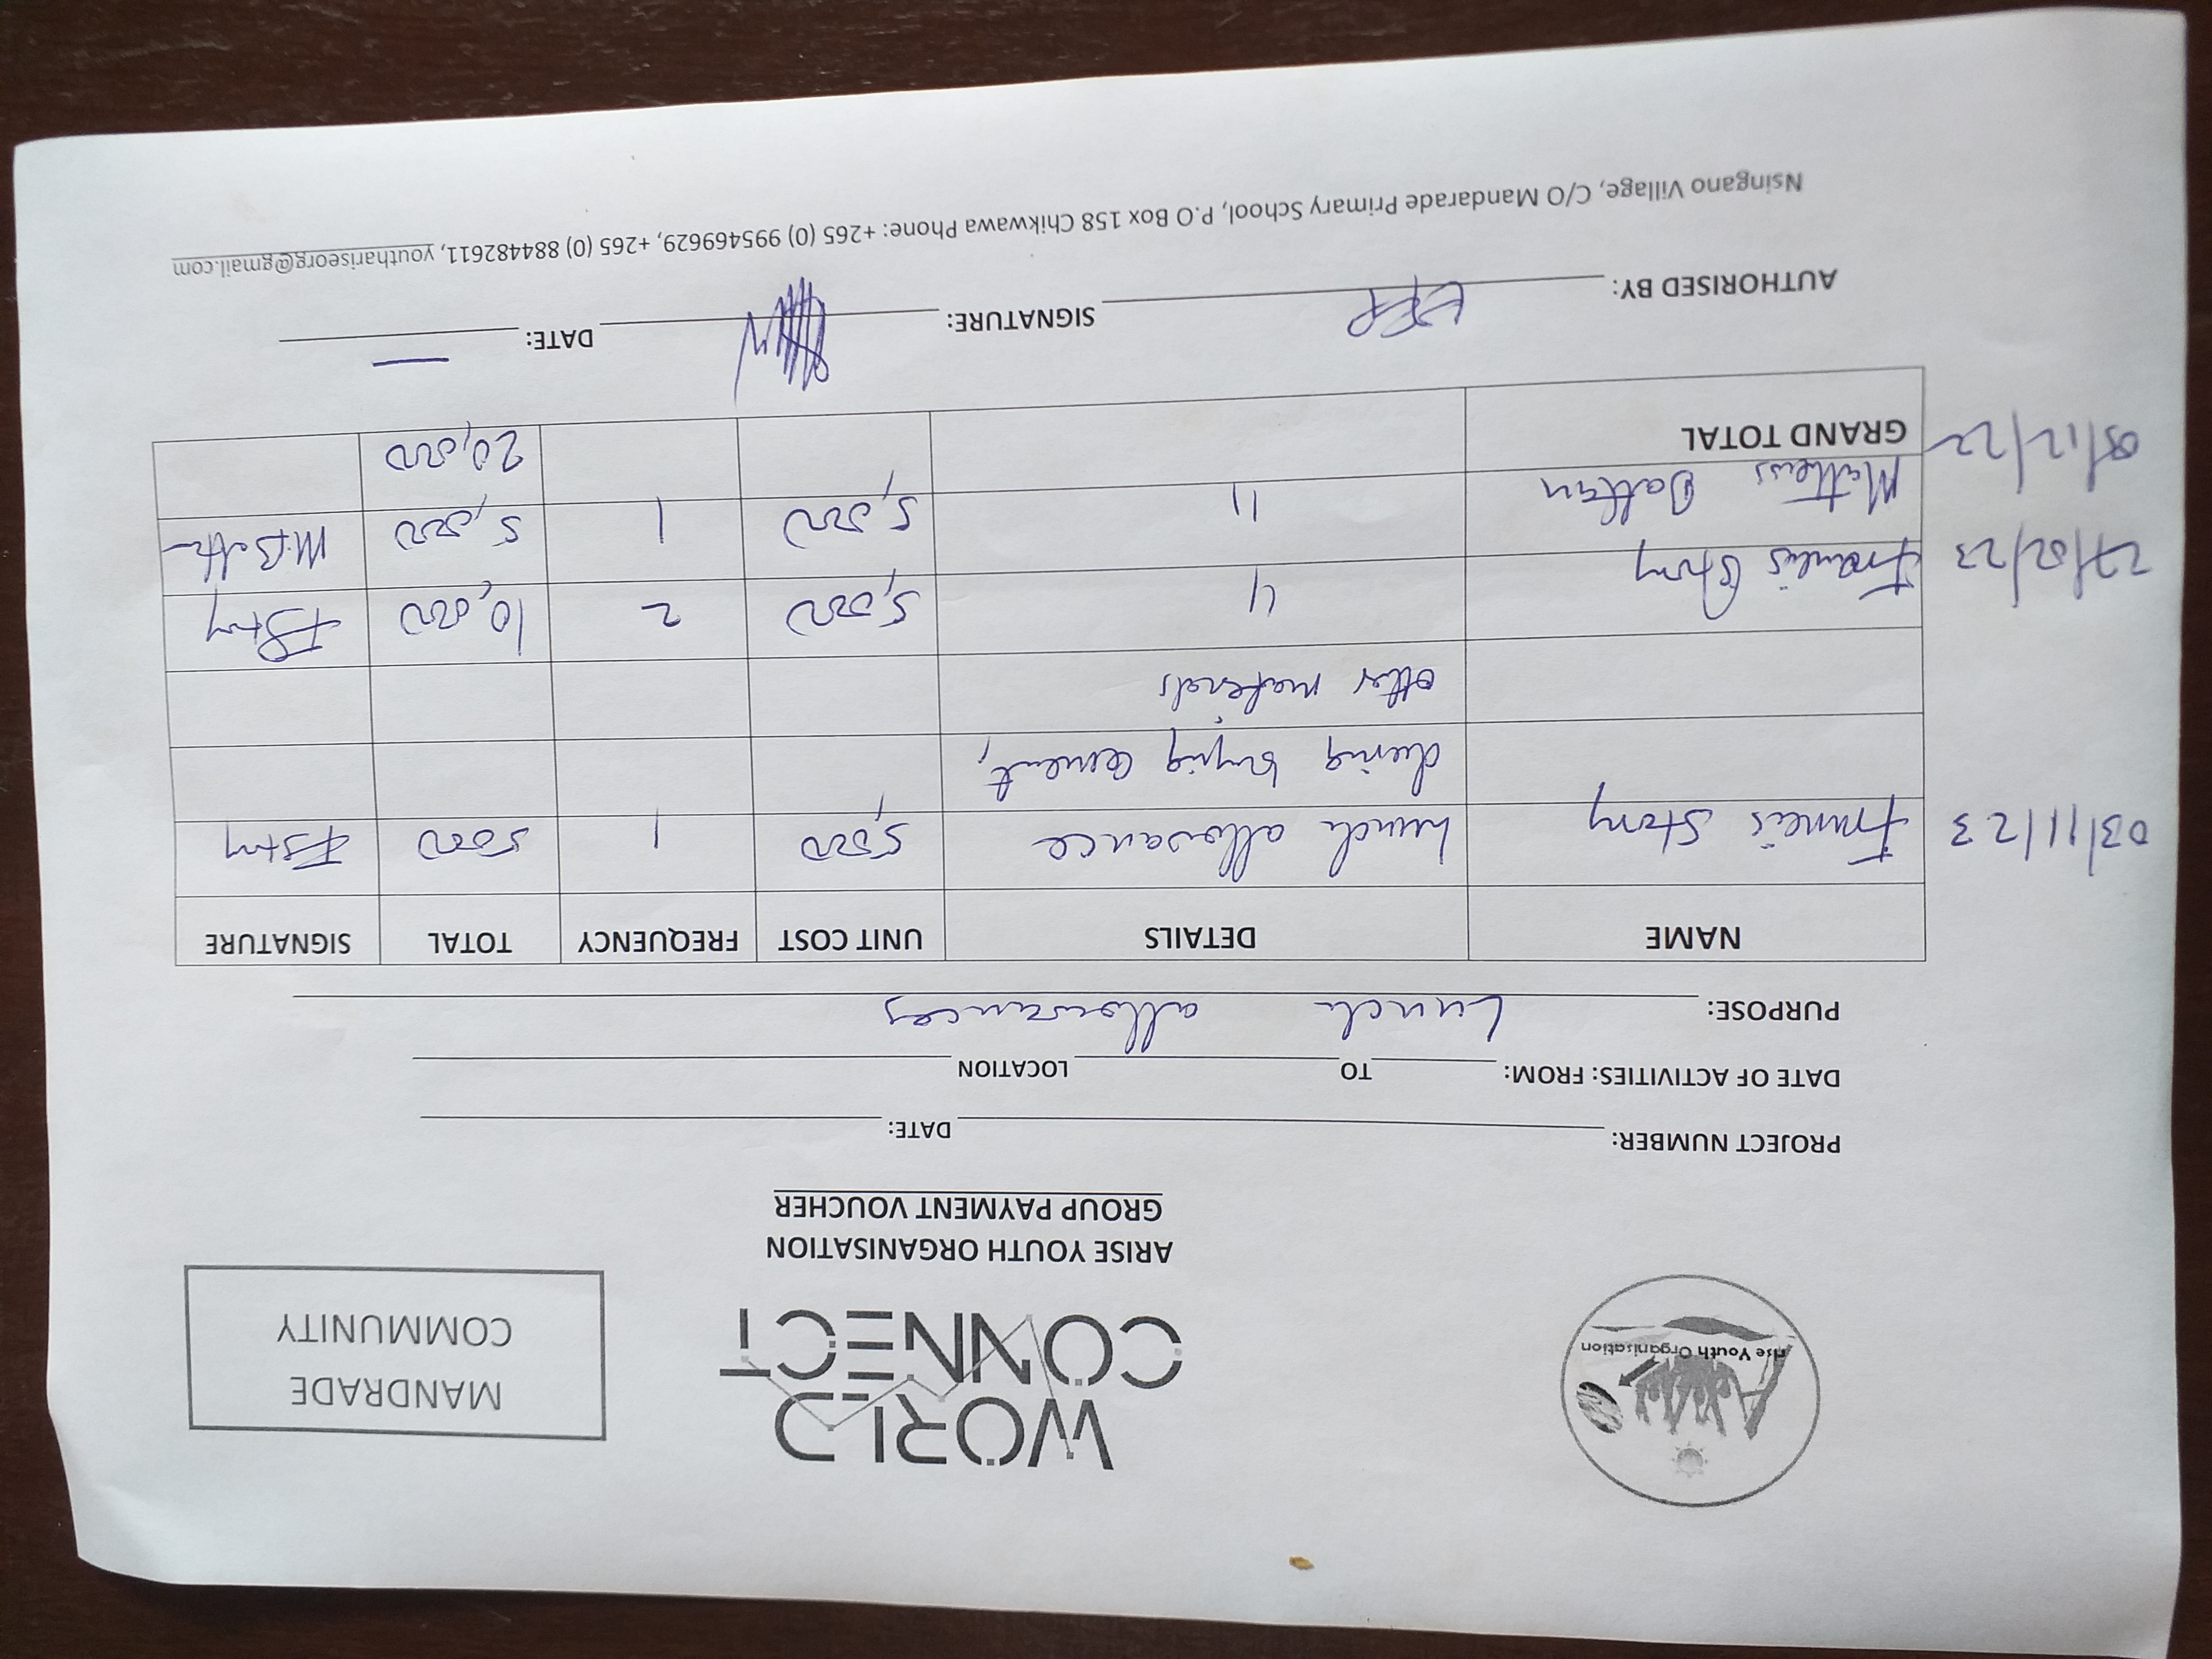 rise Youth Organisation
WORLD
CONNECT
MANDRADE
COMMUNITY
ARISE YOUTH ORGANISATION
GROUP PAYMENT VOUCHER
PROJECT NUMBER: DATE:
DATE OF ACTIVITIES: FROM: TO LOCATION
PURPOSE: Lunch allowances
NAME DETAILS UNIT COST FREQUENCY TOTAL SIGNATURE
03/11/23 Francis Story Lunch allowance 5,000 1 5000 FStory
during buying cement,
other materials
Francis Story 11 5,000 2 10,000 FStory
Mathews 11 5,000 1 5,000
GRAND TOTAL 20,000
AUTHORISED BY: SIGNATURE: DATE: —
Nsingano Village, C/O Mandarade Primary School, P.O Box 158 Chikwawa Phone: +265 (0) 995469629, +265 (0) 884482611, youthariseorg@gmail.com